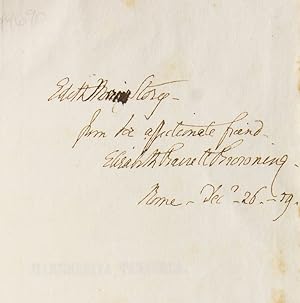 Edith Marion Story -
from her affectionate friend -
Elizabeth Barrett Browning -
Rome - Decr 26 - 59.